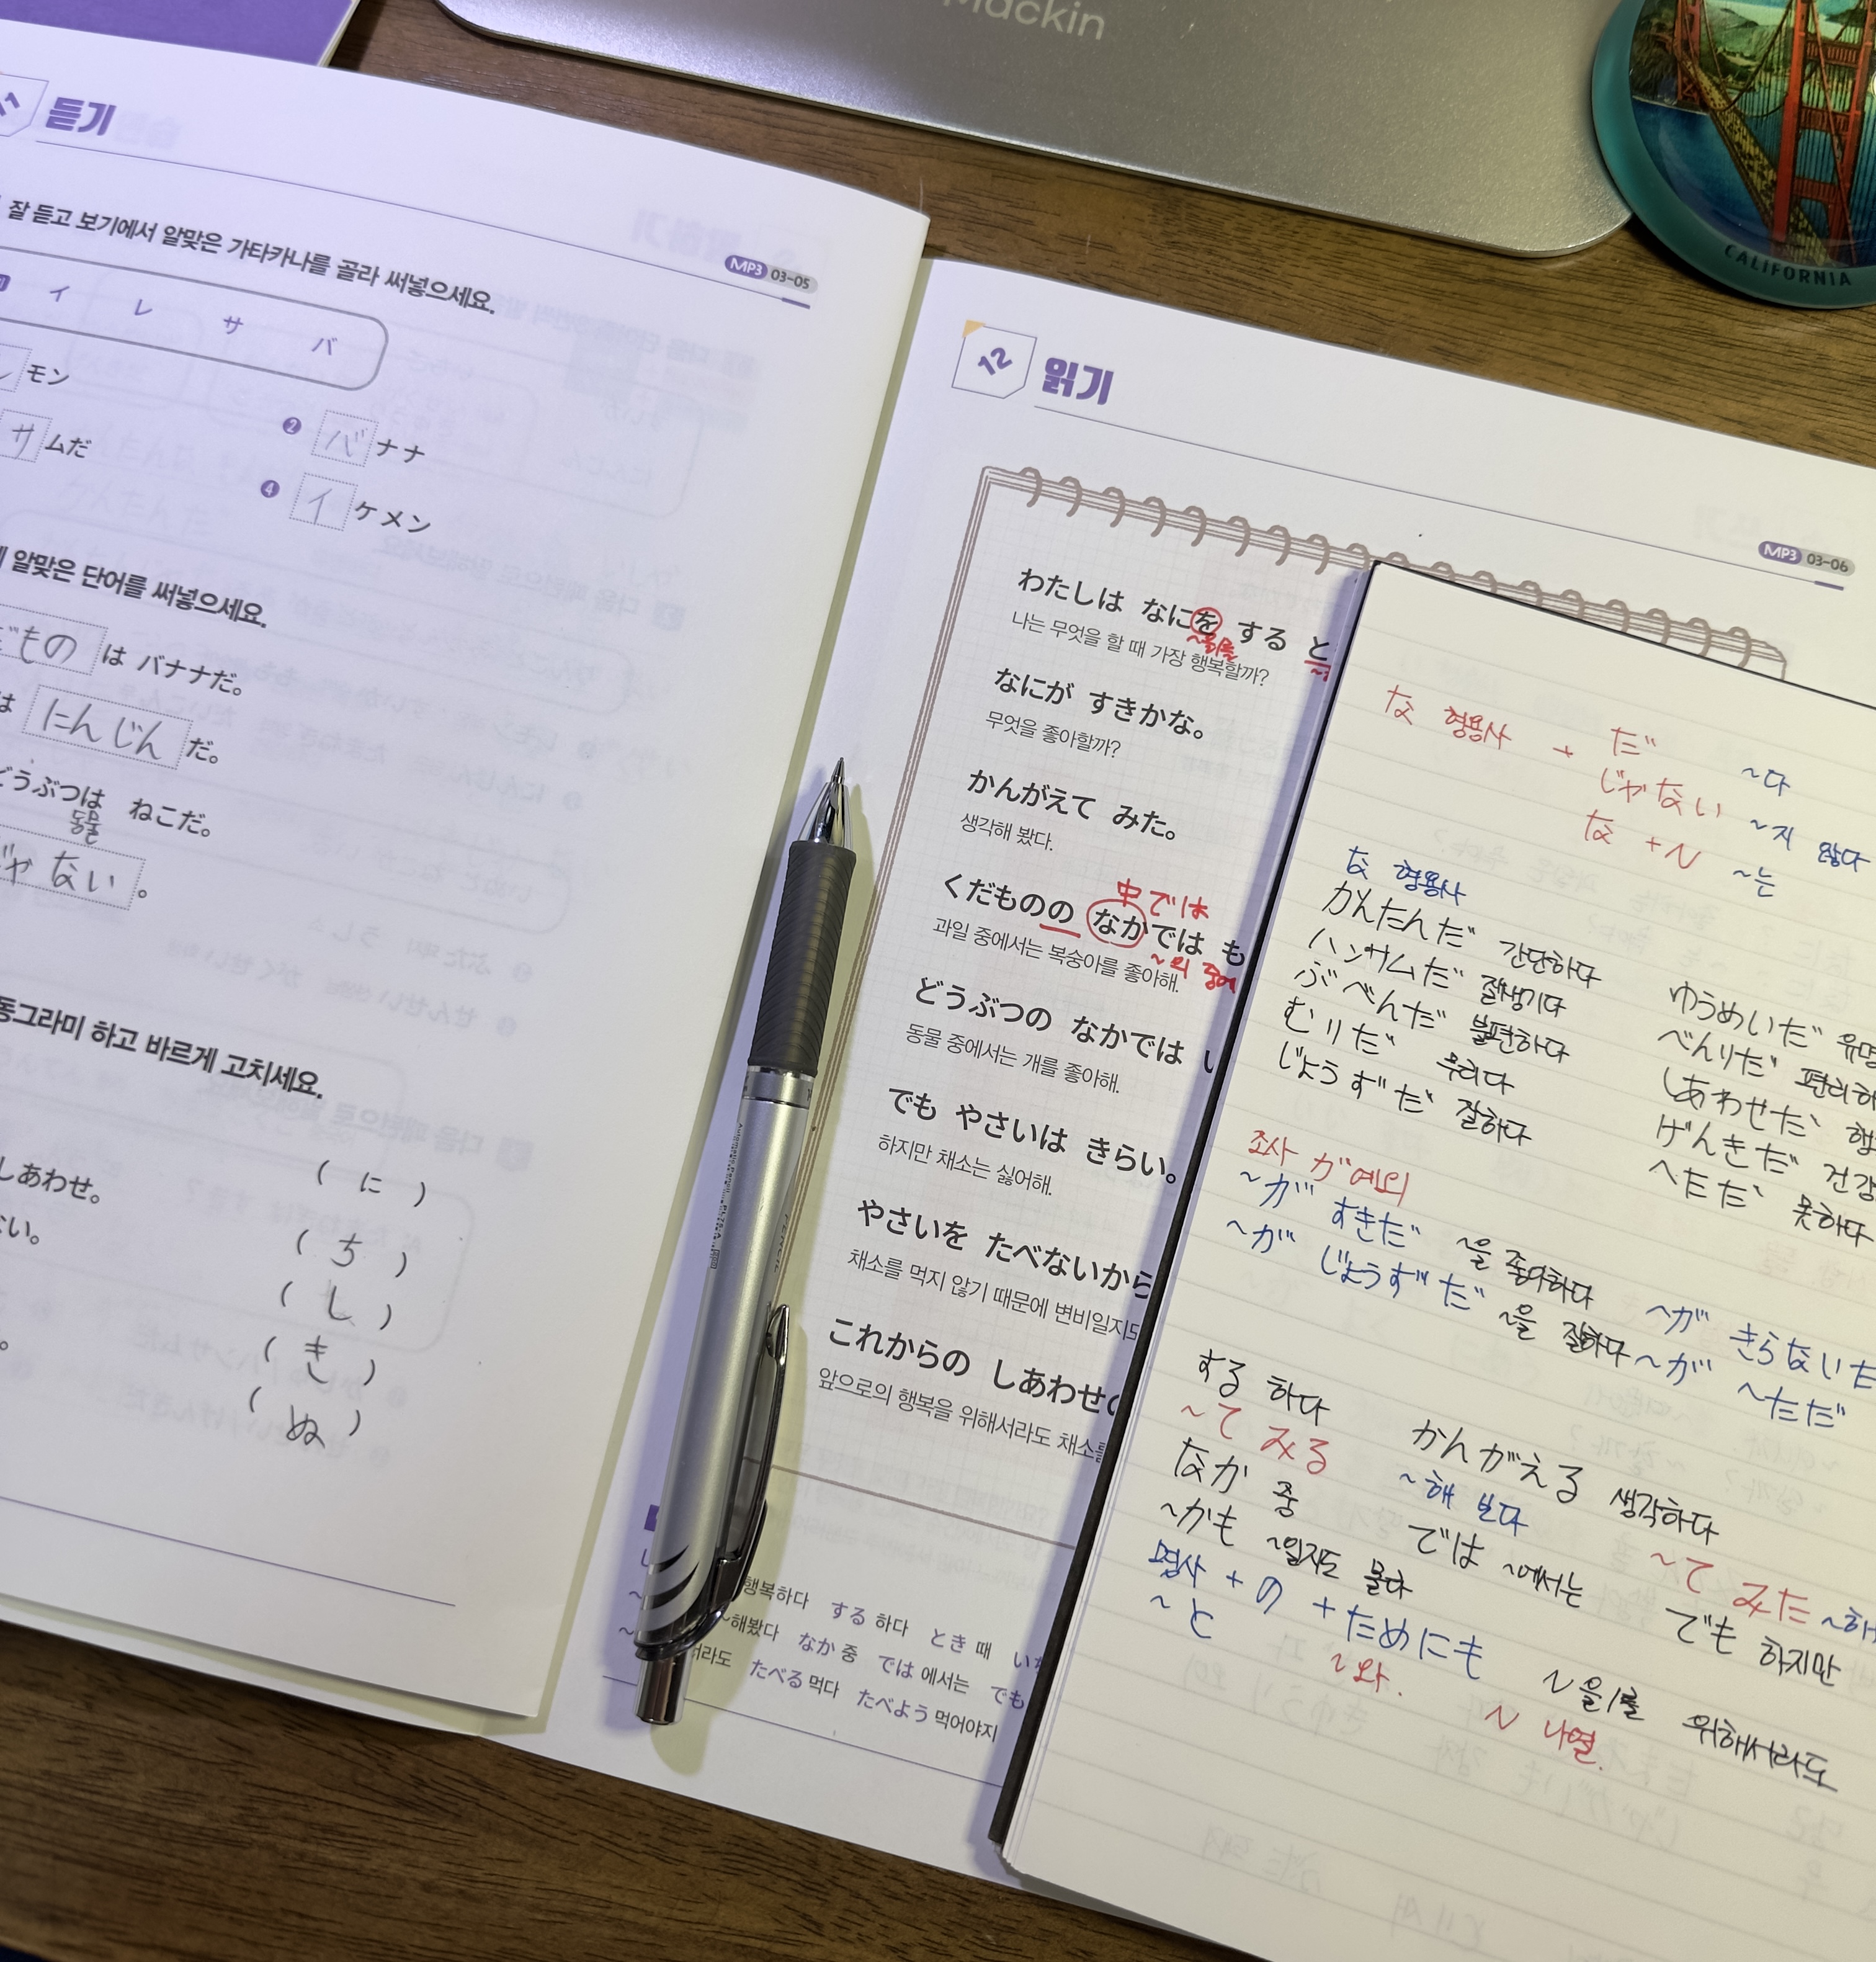 Mackin
CALIFORNIA
듣기
잘 듣고 보기에서 알맞은 가타카나를 골라 써넣으세요.
MP3 03-05
イ レ サ バ
モン
② バナナ
サムだ
④ イケメン
알맞은 단어를 써넣으세요.
だもの は バナナだ。
は にんじん だ。
どうぶつは ねこだ。
동물
じゃない 。
동그라미 하고 바르게 고치세요.
しあわせ。 ( に )
ない。 ( ち )
( し )
( き )
( ぬ )
12 읽기
MP3 03-06
わたしは なにを する と
~을/를
나는 무엇을 할 때 가장 행복할까?
なにが すきかな。
무엇을 좋아할까?
かんがえて みた。
생각해 봤다.
中では
くだものの なかでは も
과일 중에서는 복숭아를 좋아해.
~의 중에
どうぶつの なかでは い
동물 중에서는 개를 좋아해.
でも やさいは きらい。
하지만 채소는 싫어해.
やさいを たべないから
채소를 먹지 않기 때문에 변비일지도
これからの しあわせの
앞으로의 행복을 위해서라도 채소를
행복하다 する 하다 とき 때
~해봤다 なか 중 では 에서는 でも
서라도 たべる 먹다 たべよう 먹어야지
な 형용사 + だ ~다
じゃない ~지 않다
な +N ~는
な 형용사
かんたんだ 간단하다
ハンサムだ 잘생기다
ふべんだ 불편하다
むりだ 무리다
じょうずだ 잘하다
ゆうめいだ 유명
べんりだ 편리하
しあわせだ 행
げんきだ 건강
へただ 못하다
조사 が 예외
~が すきだ ~을 좋아하다
~が じょうずだ ~을 잘하다
~が きらないだ
~が へただ
する 하다 かんがえる 생각하다
~て みる ~해 보다 ~て みた ~해
なか 중 では ~에서는 でも 하지만
~かも ~일지도 몰다
명사 + の + ためにも ~을/를 위해서라도
~と ~와. ~나열.